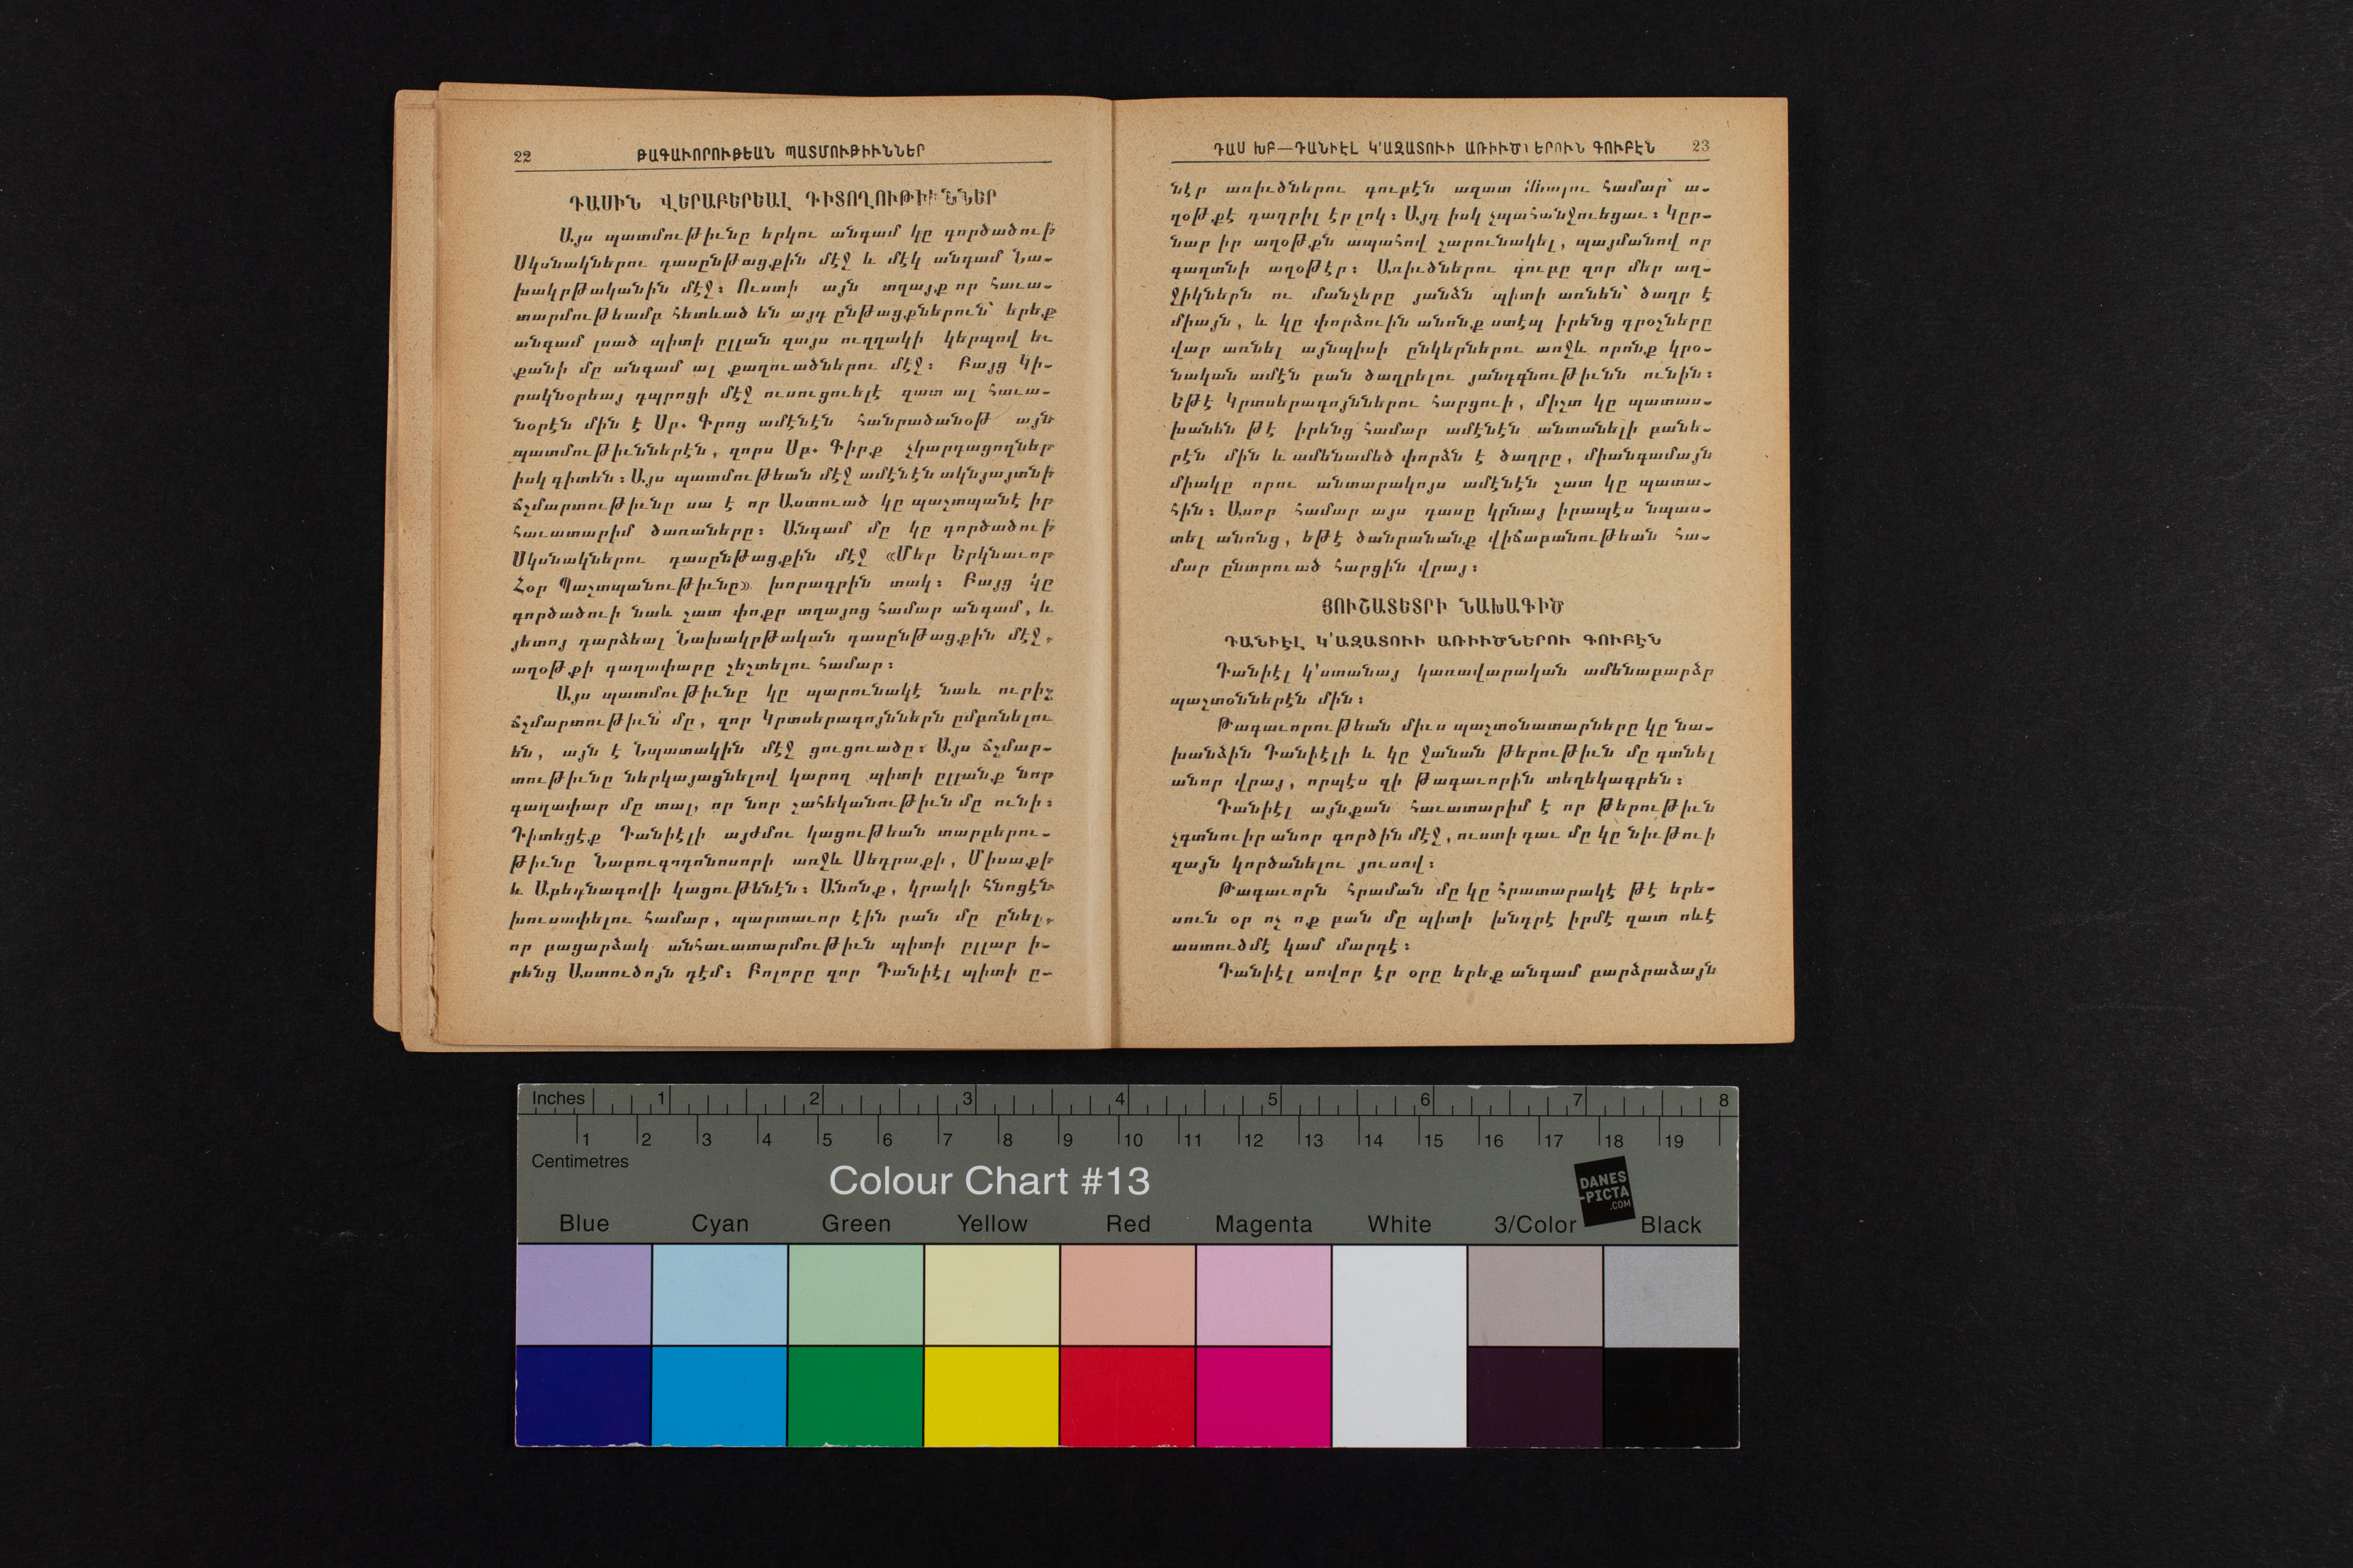 22 ԹԱԳԱՒՈՐՈՒԹԵԱՆ ՊԱՏՄՈՒԹԻՒՆՆԵՐ
ԴԱՍԻՆ ՎԵՐԱԲԵՐԵԱԼ ԴԻՏՈՂՈՒԹԻՒՆՆԵՐ
Այս պատմութիւնը երկու անգամ կը գործածուի
Սկսնակներու դասընթացքին մէջ և մէկ անգամ Նա-
խակրթականին մէջ։ Ուստի այն տղայք որ հաւա-
տարմութեամբ հետևած են այդ ընթացքներուն՝ երեք
անգամ լսած պիտի ըլլան զայս ուղղակի կերպով եւ
քանի մը անգամ ալ քաղուածներու մէջ։ Բայց Կի-
րակնօրեայ դպրոցի մէջ ուսուցուելէ զատ ալ հաւա-
նօրէն մին է Սբ. Գրոց ամէնէն հանրածանօթ այն
պատմութիւններէն, զորս Սբ. Գիրք չկարդացողներ
իսկ գիտեն։ Այս պատմութեան մէջ ամէնէն ակնյայտնի
ճշմարտութիւնը սա է որ Աստուած կը պաշտպանէ իր
հաւատարիմ ծառաները։ Անգամ մը կը գործածուի
Սկսնակներու դասընթացքին մէջ «Մեր Երկնաւոր
Հօր Պաշտպանութիւնը» խորագրին տակ։ Բայց կը
գործածուի նաև շատ փոքր տղայոց համար անգամ, և
յետոյ դարձեալ Նախակրթական դասընթացքին մէջ,
աղօթքի գաղափարը շեշտելու համար։
Այս պատմութիւնը կը պարունակէ նաև ուրիշ
ճշմարտութիւն մը, զոր Կրտսերագոյններն ըմբռնելու
են, այն է Նպատակին մէջ ցուցուածը։ Այս ճշմար-
տութիւնը ներկայացնելով կարող պիտի ըլլանք նոր
գաղափար մը տալ, որ նոր շահեկանութիւն մը ունի։
Դիտեցէք Դանիէլի այժմու կացութեան տարբերու-
թիւնը Նաբուգոդոնոսորի առջև Սեդրաքի, Միսաքի
և Աբեդնագովի կացութենէն։ Անոնք, կրակի հնոցէն
խուսափելու համար, պարտաւոր էին բան մը ընել,
որ բացարձակ անհաւատարմութիւն պիտի ըլլար ի-
րենց Աստուծոյն դէմ։ Բոլորը զոր Դանիէլ պիտի ը-
ԴԱՍ ԽԲ—ԴԱՆԻԷԼ Կ'ԱԶԱՏՈՒԻ ԱՌԻՒԾՆԵՐՈՒՆ ԳՈՒԲԷՆ 23
նէր առիւծներու գուբէն ազատ մնալու համար՝ ա-
ղօթքէ դադրիլ էր լոկ։ Այդ իսկ չպահանջուեցաւ։ Կըր-
նար իր աղօթքն ապահով շարունակել, պայմանով որ
գաղտնի աղօթէր։ Առիւծներու գուբը զոր մեր աղ-
ջիկներն ու մանչերը յանձն պիտի առնեն՝ ծաղր է
միայն, և կը փորձուին անոնք ստէպ իրենց դրօշները
վար առնել այնպիսի ընկերներու առջև որոնք կրօ-
նական ամէն բան ծաղրելու յանդգնութիւնն ունին։
Եթէ Կրտսերագոյններու հարցուի, միշտ կը պատաս-
խանեն թէ իրենց համար ամէնէն անտանելի բանե-
րէն մին և ամենամեծ փորձն է ծաղրը, միանգամայն
միակը որու անտարակոյս ամէնէն շատ կը պատա-
հին։ Ասոր համար այս դասը կրնայ իրապէս նպաս-
տել անոնց, եթէ ծանրանանք վիճաբանութեան հա-
մար ընտրուած հարցին վրայ։
ՅՈՒՇԱՏԵՏՐԻ ՆԱԽԱԳԻԾ
ԴԱՆԻԷԼ Կ'ԱԶԱՏՈՒԻ ԱՌԻՒԾՆԵՐՈՒ ԳՈՒԲԷՆ
Դանիէլ կ'ստանայ կառավարական ամենաբարձր
պաշտօններէն մին։
Թագաւորութեան միւս պաշտօնատարները կը նա-
խանձին Դանիէլի և կը ջանան թերութիւն մը գտնել
անոր վրայ, որպէս զի Թագաւորին տեղեկագրեն։
Դանիէլ այնքան հաւատարիմ է որ թերութիւն
չգտնուիր անոր գործին մէջ, ուստի դաւ մը կը նիւթուի
զայն կործանելու յուսով։
Թագաւորն հրաման մը կը հրատարակէ թէ երե-
սուն օր ոչ ոք բան մը պիտի խնդրէ իրմէ զատ ոևէ
աստուծմէ կամ մարդէ։
Դանիէլ սովոր էր օրը երեք անգամ բարձրաձայն
Inches 1 2 3 4 5 6 7 8
1 2 3 4 5 6 7 8 9 10 11 12 13 14 15 16 17 18 19
Centimetres
Colour Chart #13
DANES
-PICTA
.COM
Blue Cyan Green Yellow Red Magenta White 3/Color Black